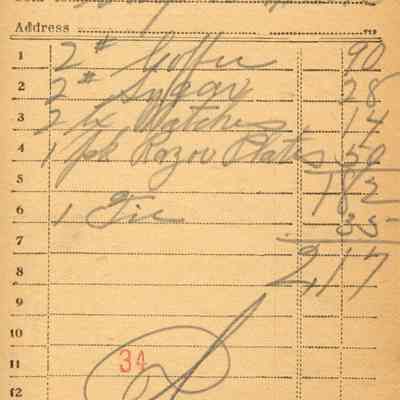 Address
1 2# Coffee 90
2 2# Sugar 28
3 2 bx Matches 14
4 1 pk Razor Blades 50
5 182
6 1 Tie 35
7
8 2,17
9
10
11 34
12